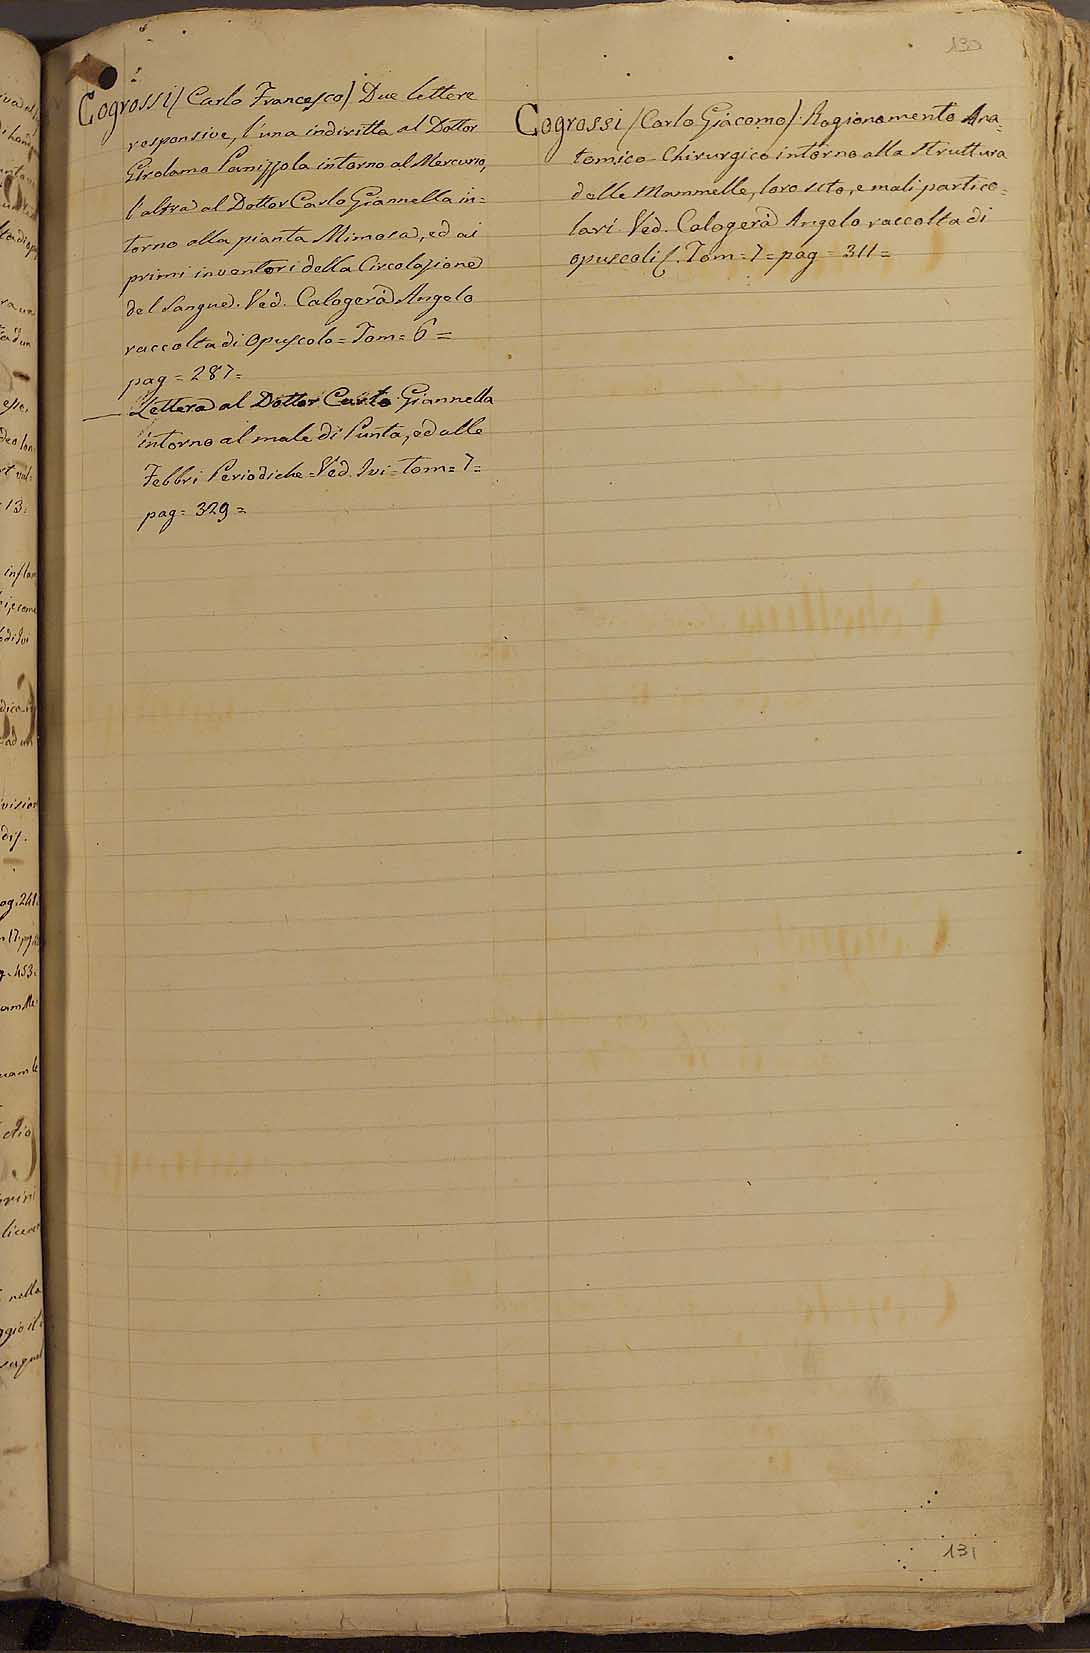 130
Cogrossi / Carlo Francesco / Due lettere
responsive, l'una indiritta al Dottor
Girolamo Panizzola intorno al Mercurio,
l'altra al Dottor Carlo Giannella in=
torno alla pianta Mimosa, ed ai
primi inventori della Circolazione
del Sangue. Ved. Calogerà Angelo
raccolta di Opuscolo = Tom = 6 =
pag = 287 =
— Lettera al Dottor Carlo Giannella
intorno al male di Punta, ed alle
Febbri Periodiche = Ved. Ivi = Tom = 7 =
pag = 329 =
Cogrossi / Carlo Giacomo / Ragionamento Ana=
tomico-Chirurgico intorno alla struttura
delle Mammelle, loro sito, e mali partico=
lari. Ved. Calogerà Angelo raccolta di
opuscoli. Tom = 7 = pag = 311 =
131